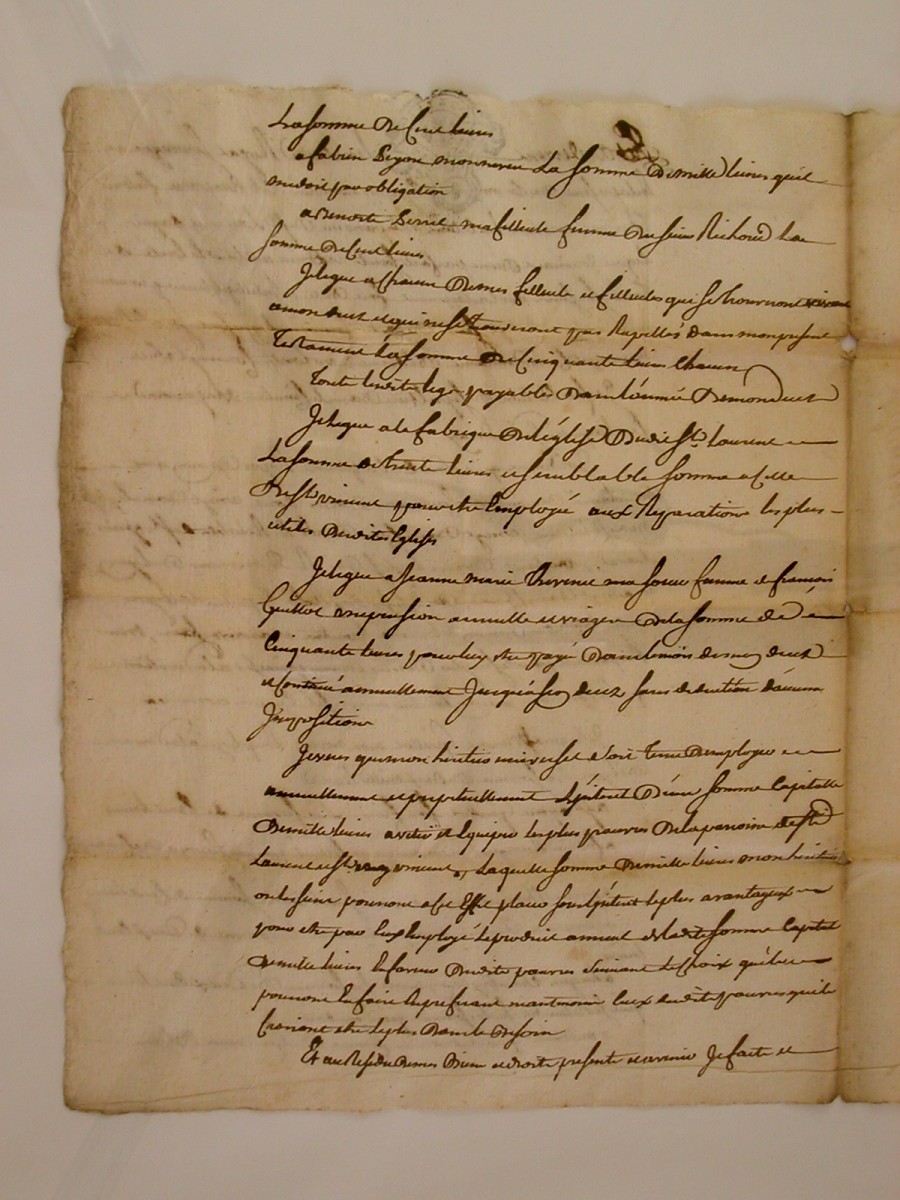 La somme de cent livres
a fabien monneveu La somme de mille livres quil
me doit par obligation
a Benoite ma filleule femme du sieur Richoud La
somme de cent livres
Je legue a chacun de mes filleuls et filleules qui se trouveront vivant
a mon deces et qui ne se trouveront pas Rapellés dans mon present
Testament La somme de Cinquante livres chacun
Tous lesdits legs payables dans l'année de mon deces
Je legue a la fabrique de l'églize dudit St. Laurent
La somme de trente livres et semblable somme a celle
de St vincent pour etre Employé aux Reparations les plus
utiles desdites Eglises
Je legue a jeanne marie ma soeur femme de francois
une pension annuelle et viagere de la somme de
Cinquante livres pour luy etre payé dans le mois de mon deces
et continué annuellement jusqu'a son deces sans deduction d'aucune
Imposition
Je veux que mon heritier universel soit Tenu d'employer
annuellement et perpetuellement l'jnteret d'une somme Capitalle
de mille livres a vetir et les plus pauvres de la paroisse de St
Laurent et St vincent, Laquelle somme de mille livres mon heritier
ou les siens pourront a cet Effet placer sous l'jnteret le plus avantageux
pour etre par Eux Employé le produit annuel de ladite somme Capital
de mille livres En faveur desdits pauvres suivant le Choix qu'ils
pourront En faire En preferant neantmoins Ceux desdits pauvres qu'ils
croiront etre le plus dans le Besoin
Et au Residu de mes Biens et droits presents et avenir Je fais et